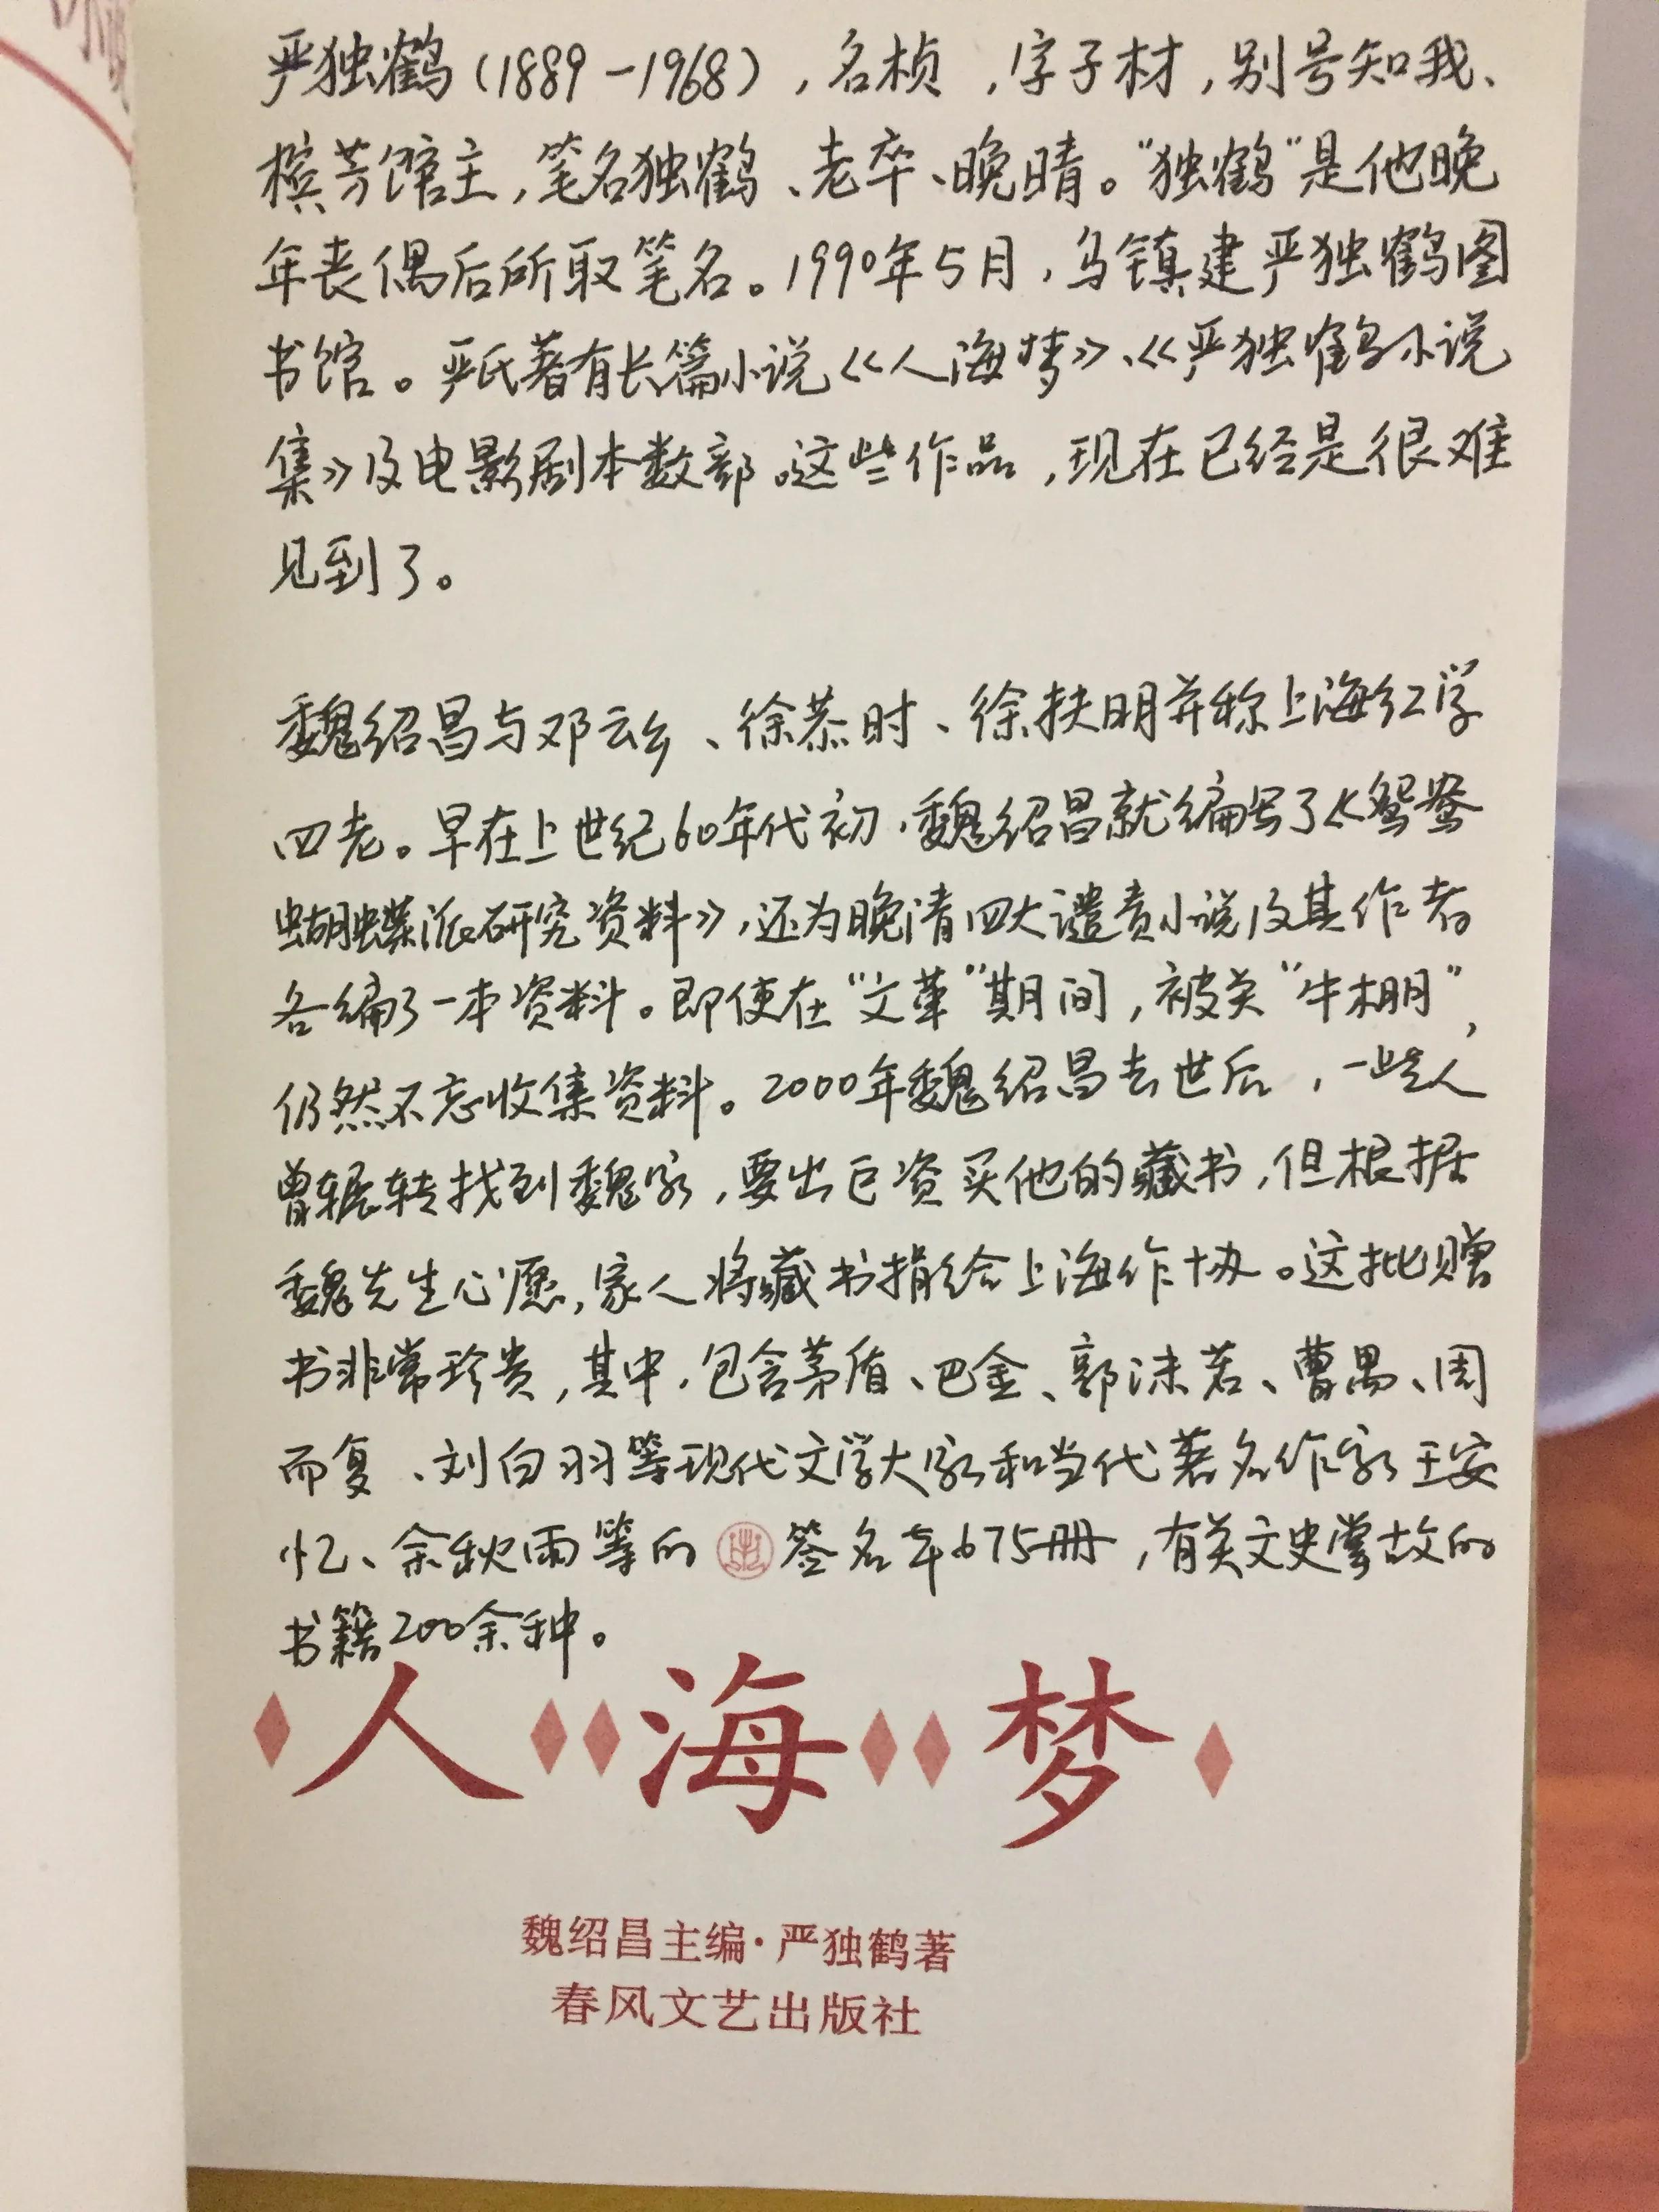 严独鹤(1889-1968),名桢,字子材,别号知我、
槟芳馆主,笔名独鹤、老卒、晚晴。“独鹤”是他晚
年丧偶后所取笔名。1990年5月,乌镇建严独鹤图
书馆。严氏著有长篇小说《人海梦》、《严独鹤小说
集》及电影剧本数部。这些作品,现在已经是很难
见到了。
魏绍昌与邓云乡、徐恭时、徐扶明并称上海红学
四老。早在上世纪60年代初,魏绍昌就编写了《鸳鸯
蝴蝶派研究资料》,还为晚清四大谴责小说及其作者
各编了一本资料。即使在“文革”期间,被关“牛棚”,
仍然不忘收集资料。2000年魏绍昌去世后,一些人
曾辗转找到魏家,要出巨资买他的藏书,但根据
魏先生心愿,家人将藏书捐给上海作协。这批赠
书非常珍贵,其中,包含茅盾、巴金、郭沫若、曹禺、周
而复、刘白羽等现代文学大家和当代著名作家王安
忆、余秋雨等的签名本675册,有关文史掌故的
书籍200余种。
人海梦
魏绍昌主编·严独鹤著
春风文艺出版社